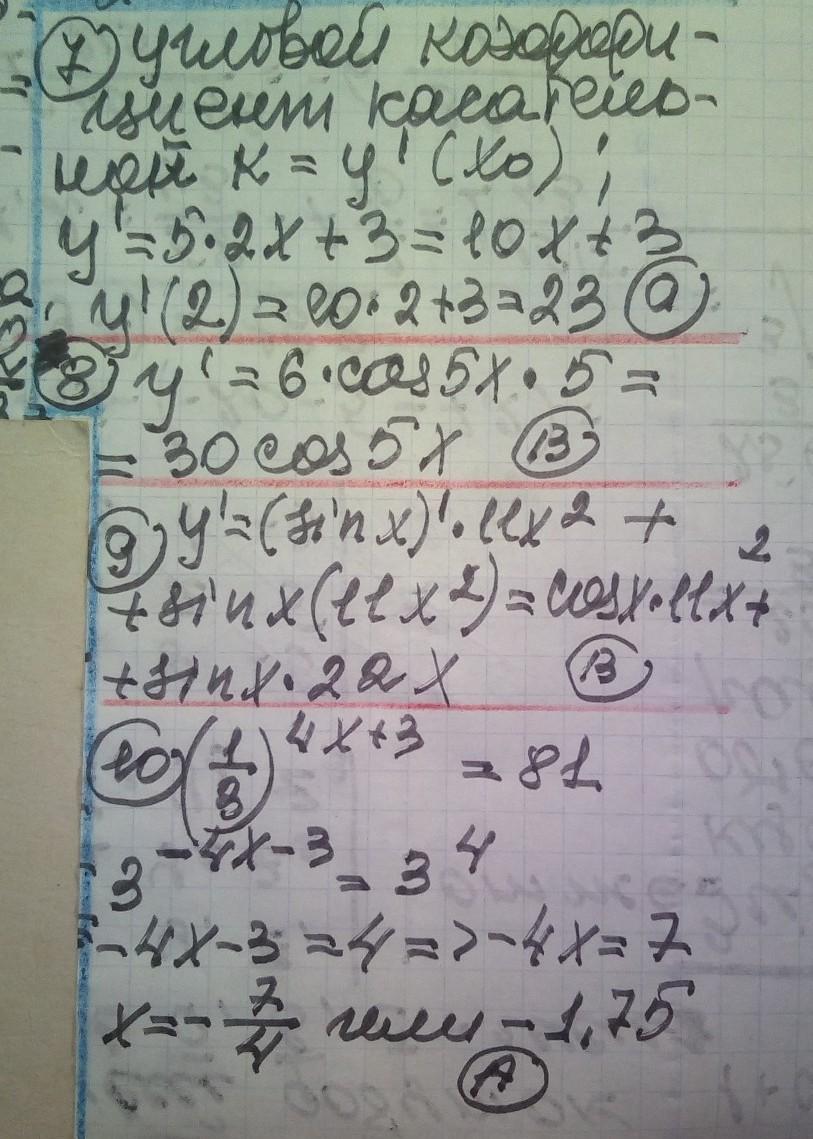 7) угловой коэффи-
циент касатель-
ной к = y' (x₀) ;
y' = 5·2x + 3 = 10x + 3
y'(2) = 10·2+3 = 23 а
8) y' = 6·cos5x·5 =
= 30 cos5x В
9) y' = (sinx)'·11x² +
+ sinx(11x²) = cosx·11x² +
+ sinx·22x В
10) (1/3)^(4x+3) = 81
3^(-4x-3) = 3^4
-4x-3 = 4 => -4x = 7
x = -7/4 или -1,75
А